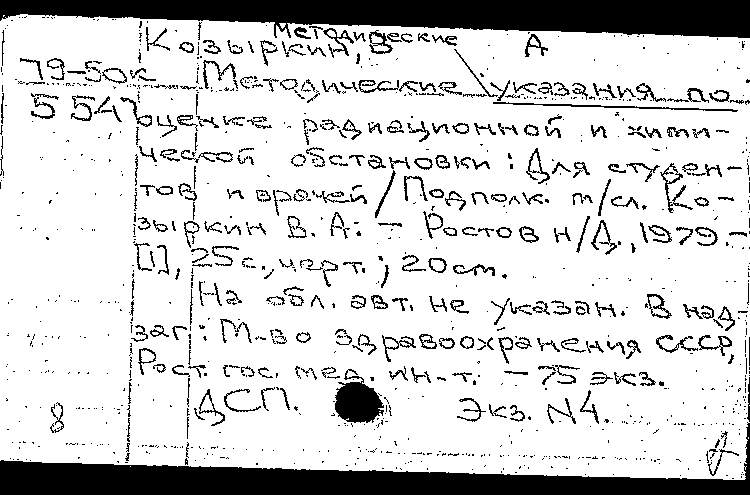 Методические
Козыркин, В А
79-50к Методические указания по
5547 оценке радиационной и хими-
ческой обстановки: Для студен-
тов и врачей / Подполк. м/сл. Ко-
зыркин В. А. – Ростов н/Д., 1979.–
[1], 25 с., черт.; 20 см.
На обл. авт. не указан. В над-
заг: М-во здравоохранения СССР,
Рост. гос. мед. ин-т. – 75 экз.
ДСП. Экз. N4.
8